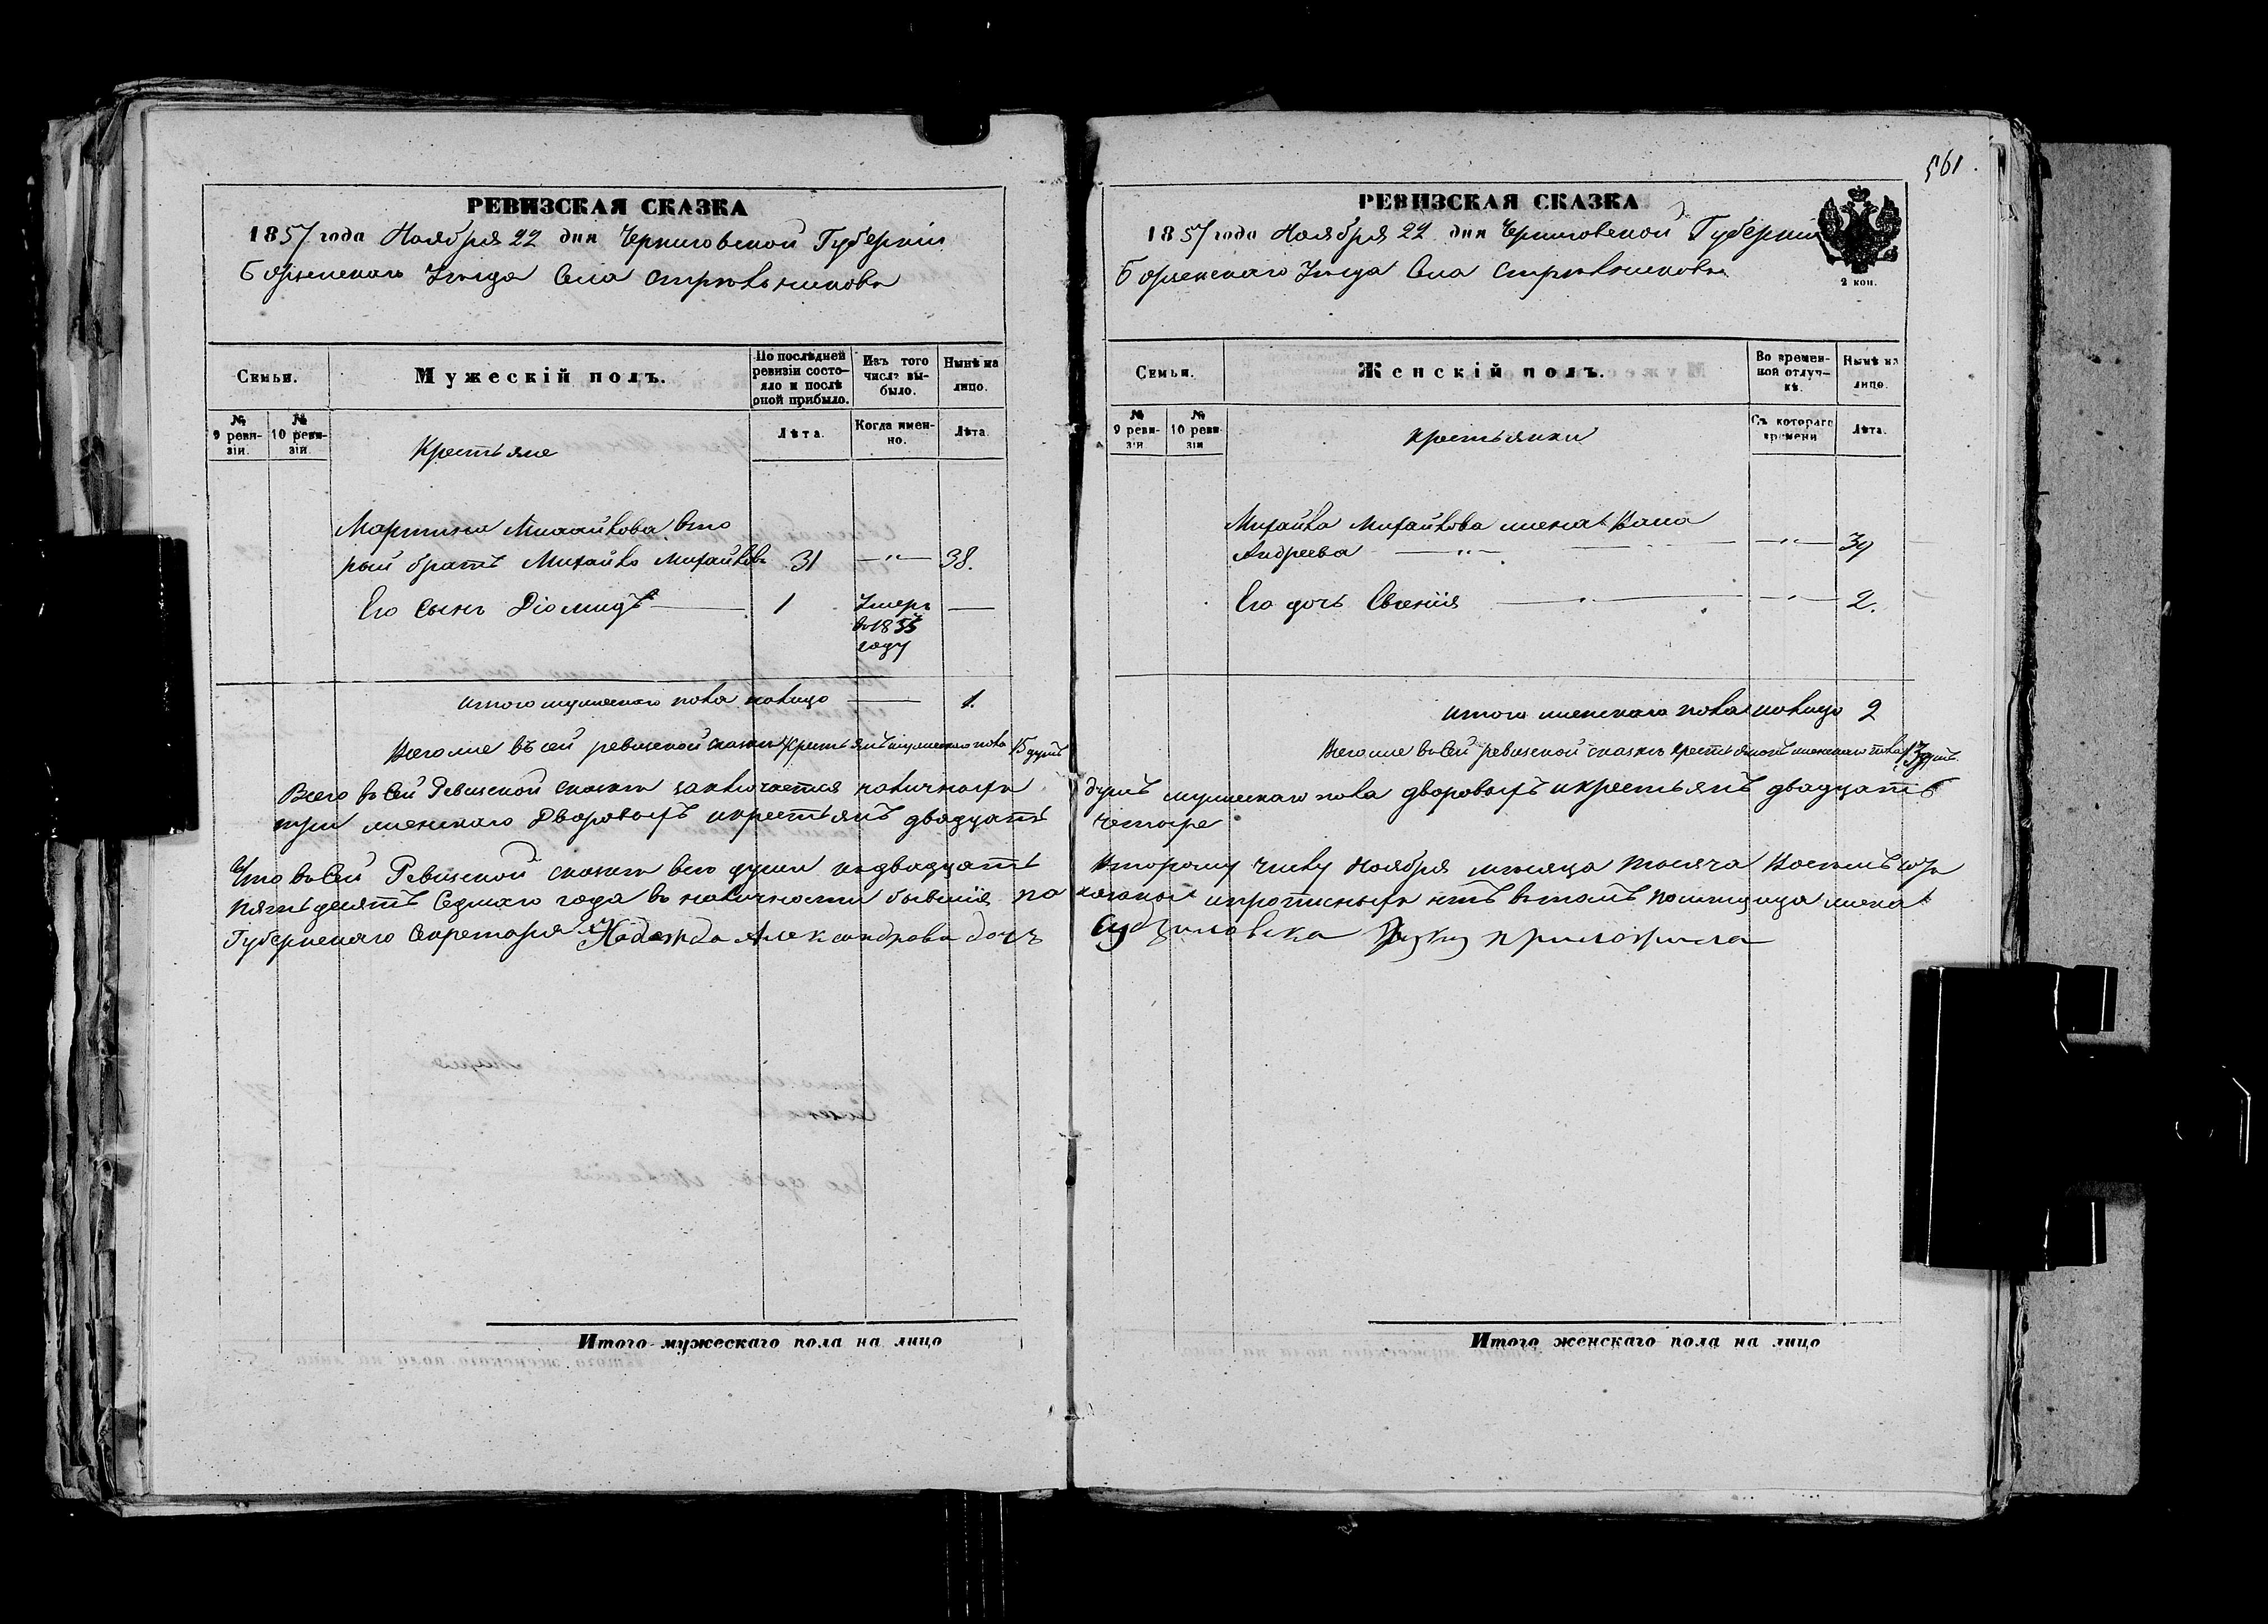 561.
РЕВИЗСКАЯ СКАЗКА
1857 года Ноября 22 дня Черниговской Губерніи
Борзенскаго Уезда Села
Семьи.
Мужескій полъ.
По послѣдней ревизіи состояло и послѣ оной прибыло.
Изъ того числа выбыло.
Нынѣ на лицо.
№ 9 ревизіи.
№ 10 ревизіи.
Крестьяне
Лѣта.
Когда именно.
Лѣта.
Мартина Михайлова вто
рый братъ Михайло Михайловъ 31 —„— 38.
Его сынъ Діомидъ 1 Умеръ —
въ 1855
году
Итого мужескаго пола налицо — 1.
Всего же въ сей ревизской сказке крестьянъ мужескаго пола 15 душъ
Всего въ сей Ревизской сказки заключается наличныхъ
три женскаго Дворовыхъ и крестьянъ двадцать
Что въ сей Ревизской сказки все души подвадцать
пятьдесятъ седмаго года въ наличности бывшія по
Губернскаго Секретаря Надежда Александрова дочь
Итого мужескаго пола на лицо
РЕВИЗСКАЯ СКАЗКА
1857 года Ноября 22 дня Черниговской Губерніи
Борзенскаго Уезда Села
2 коп.
Семьи.
Женскій полъ.
Во временной отлучкѣ.
Нынѣ на лицо.
№ 9 ревизіи
№ 10 ревизіи
Крестьянки
Съ котораго времени
Лѣта.
Михайла Михайлова жена
Андреева —„— —„— 39
Его дочь Евгенія — — 2.
Итого женскаго пола налицо 2
Всего же въ сей ревизской сказкѣ крестьянокъ женскаго пола 13 душъ.
душъ мужескаго пола дворовыхъ и крестьянъ двадцать
четыре
второму числу Ноября месяца тысяча восемьсотъ
показаны и прописныхъ нетъ въ томъ помещица жена
руку приложила
Итого женскаго пола на лицо